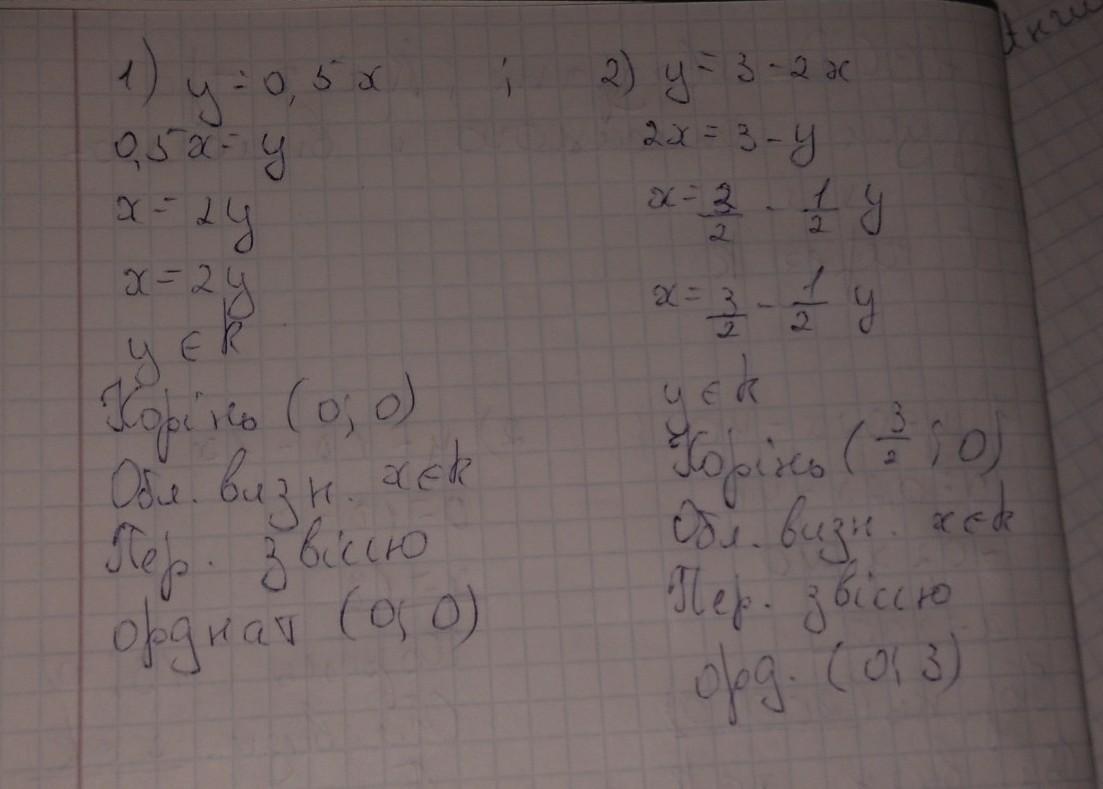 1) y = 0,5x ;
0,5x = y
x = 2y
x = 2y
y ∈ k
Корінь (0; 0)
Обл. визн. x ∈ k
Пер. з віссю
орднат (0; 0)
2) y = 3 - 2x
2x = 3 - y
x = 3/2 - 1/2 y
x = 3/2 - 1/2 y
y ∈ k
Корінь (3/2; 0)
Обл. визн. x ∈ k
Пер. з віссю
орд. (0; 3)